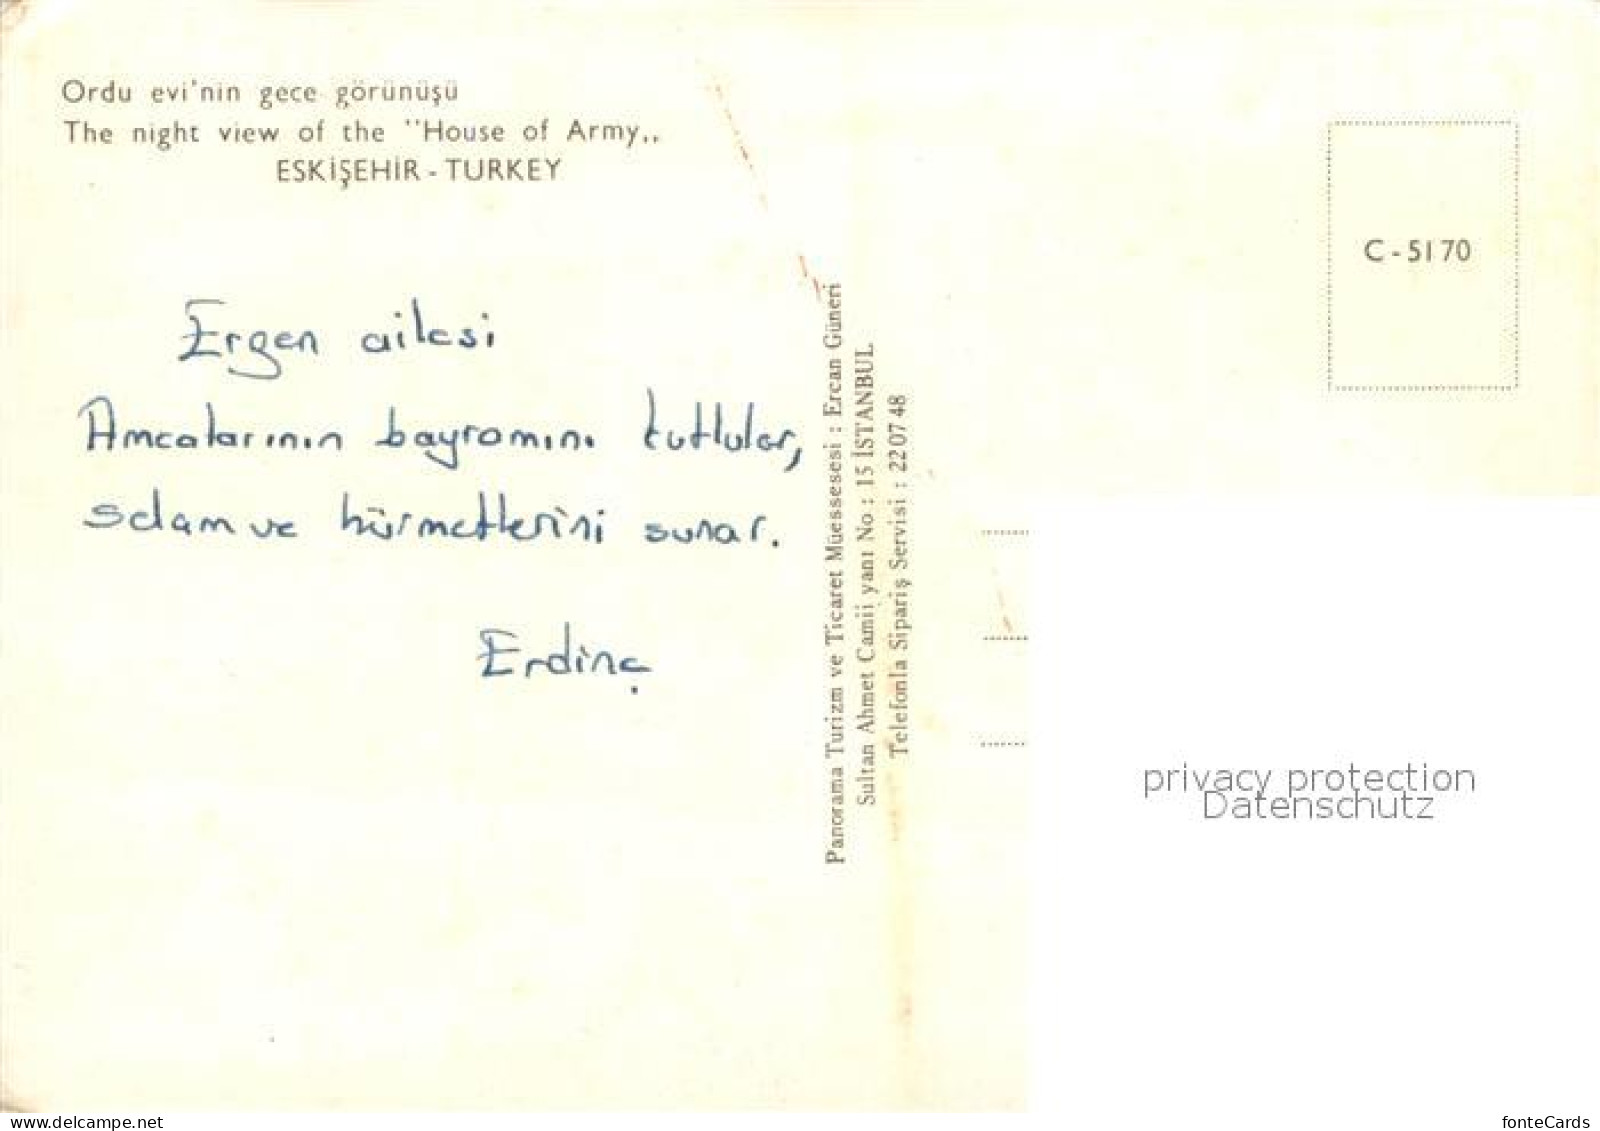 Ordu evi'nin gece görünüşü
The night view of the "House of Army,,
ESKİŞEHİR - TURKEY
Ergen ailesi
Amcalarının bayramını kutlular,
selam ve hürmetlerini sunar.
Erdinç
Panorama Turizm ve Ticaret Müessesesi : Ercan Güneri
Sultan Ahmet Camii yanı No : 15 İSTANBUL
Telefonla Sipariş Servisi : 22 07 48
C - 5170
privacy protection
Datenschutz
delcampe.net
fonteCards